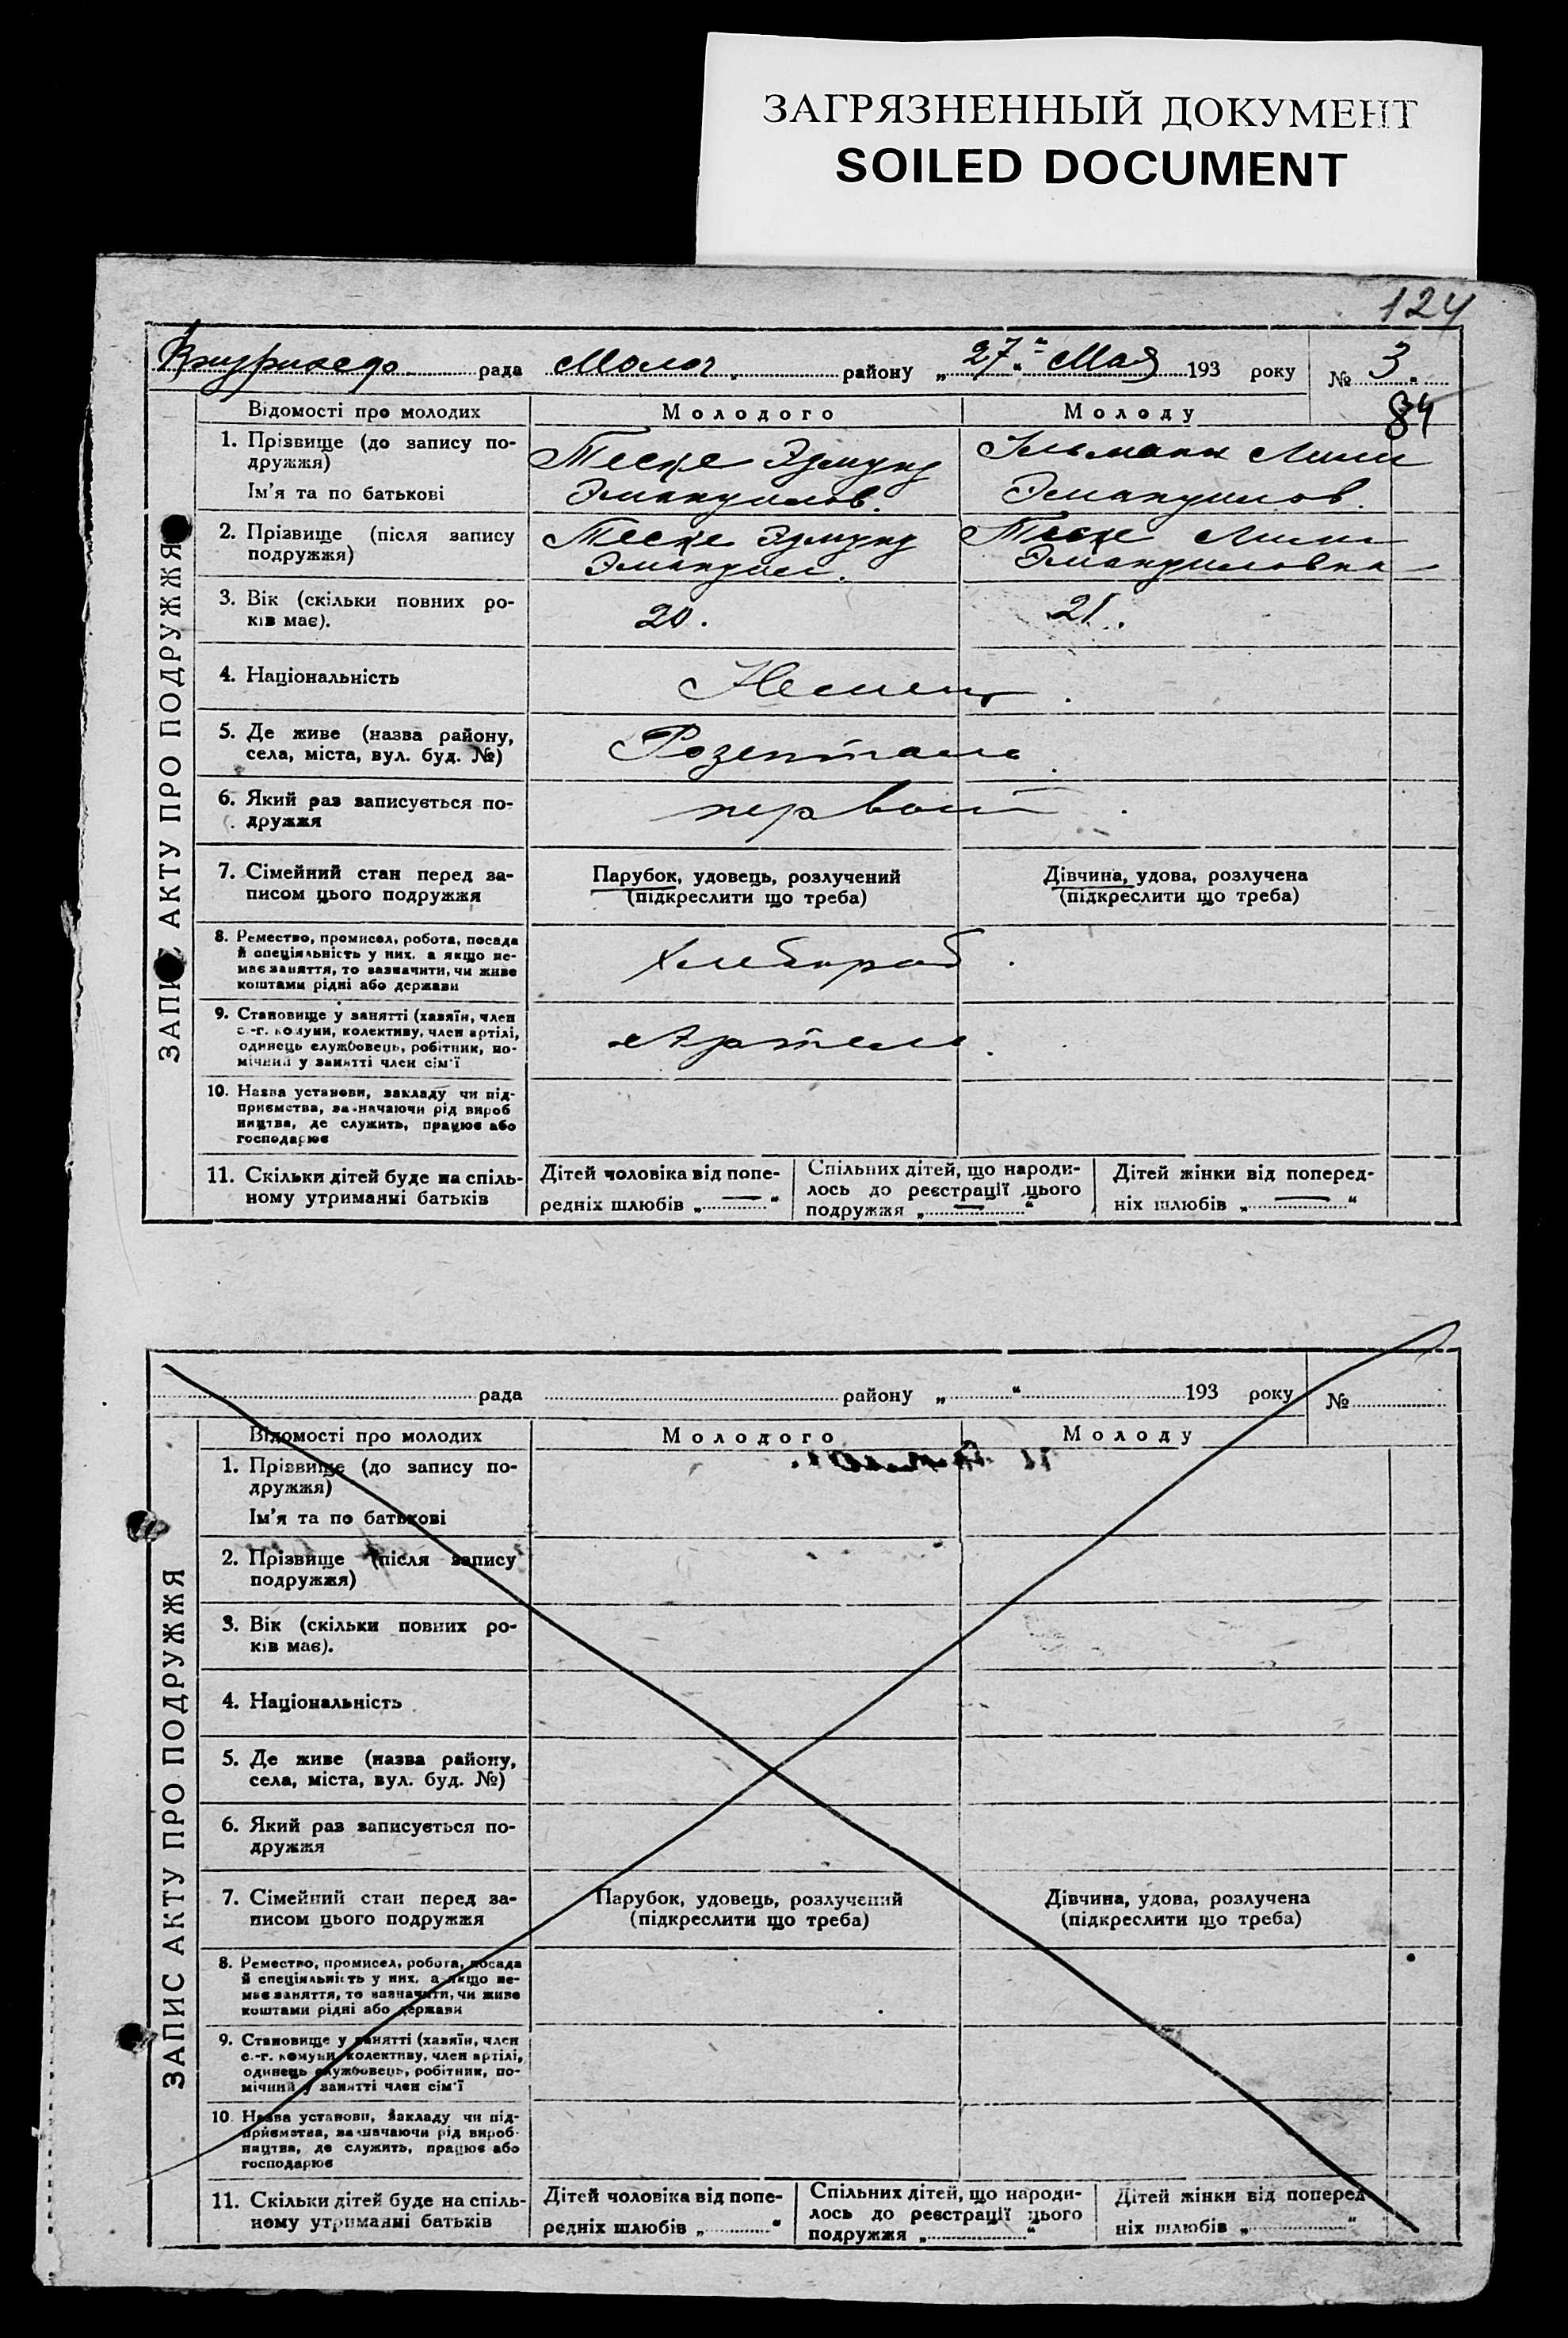 ЗАГРЯЗНЕННЫЙ ДОКУМЕНТ
SOILED DOCUMENT
124
рада Молоч. району „27“ Мая 193 року № 3.
84
ЗАПИС АКТУ ПРО ПОДРУЖЖЯ
Відомості про молодих Молодого Молоду
1. Прізвище (до запису по-
дружжя)
Ім'я та по батькові
Теске Эдмунд
Эмануилов.
Гельманн Лили
Эмануилов.
2. Прізвище (після запису
подружжя)
Теске Эдмунд
Эмануил.
Теске Лили
Эмануиловна
3. Вік (скільки повних ро-
ків має).
20. 21.
4. Національність
Немец
5. Де живе (назва району,
села, міста, вул. буд. №)
Розенталь
6. Який раз записується по-
дружжя
первый
7. Сімейний стан перед за-
писом цього подружжя
Парубок, удовець, розлучений
(підкреслити що треба)
Дівчина, удова, розлучена
(підкреслити що треба)
8. Ремество, промисел, робота, посада
й спеціяльність у них, а якщо не-
має заняття, то зазначити, чи живе
коштами рідні або держави
Хлебороб.
9. Становище у занятті (хазяїн, член
с.-г. комуни, колективу, член артілі,
одинець службовець, робітник, по-
мічний у занятті член сім'ї
Артель.
10. Назва установи, закладу чи під-
приємства, зазначаючи рід вироб
ництва, де служить, працює або
господарює
11. Скільки дітей буде на спіль-
ному утриманні батьків
Дітей чоловіка від попе-
редніх шлюбів „—“
Спільних дітей, що народи-
лось до реєстрації цього
подружжя „—“
Дітей жінки від поперед-
ніх шлюбів „—“
рада району „ “ 193 року №
ЗАПИС АКТУ ПРО ПОДРУЖЖЯ
Відомості про молодих Молодого Молоду
1. Прізвище (до запису по-
дружжя)
Ім'я та по батькові
2. Прізвище (після запису
подружжя)
3. Вік (скільки повних ро-
ків має).
4. Національність
5. Де живе (назва району,
села, міста, вул. буд. №)
6. Який раз записується по-
дружжя
7. Сімейний стан перед за-
писом цього подружжя
Парубок, удовець, розлучений
(підкреслити що треба)
Дівчина, удова, розлучена
(підкреслити що треба)
8. Ремество, промисел, робота, посада
й спеціяльність у них, а якщо не-
має заняття, то зазначити, чи живе
коштами рідні або держави
9. Становище у занятті (хазяїн, член
с.-г. комуни, колективу, член артілі,
одинець службовець, робітник, по-
мічний у занятті член сім'ї
10. Назва установи, закладу чи під-
приємства, зазначаючи рід вироб-
ництва, де служить, працює або
господарює
11. Скільки дітей буде на спіль-
ному утриманні батьків
Дітей чоловіка від попе-
редніх шлюбів „ “
Спільних дітей, що народи-
лось до реєстрації цього
подружжя „ “
Дітей жінки від поперед-
ніх шлюбів „ “